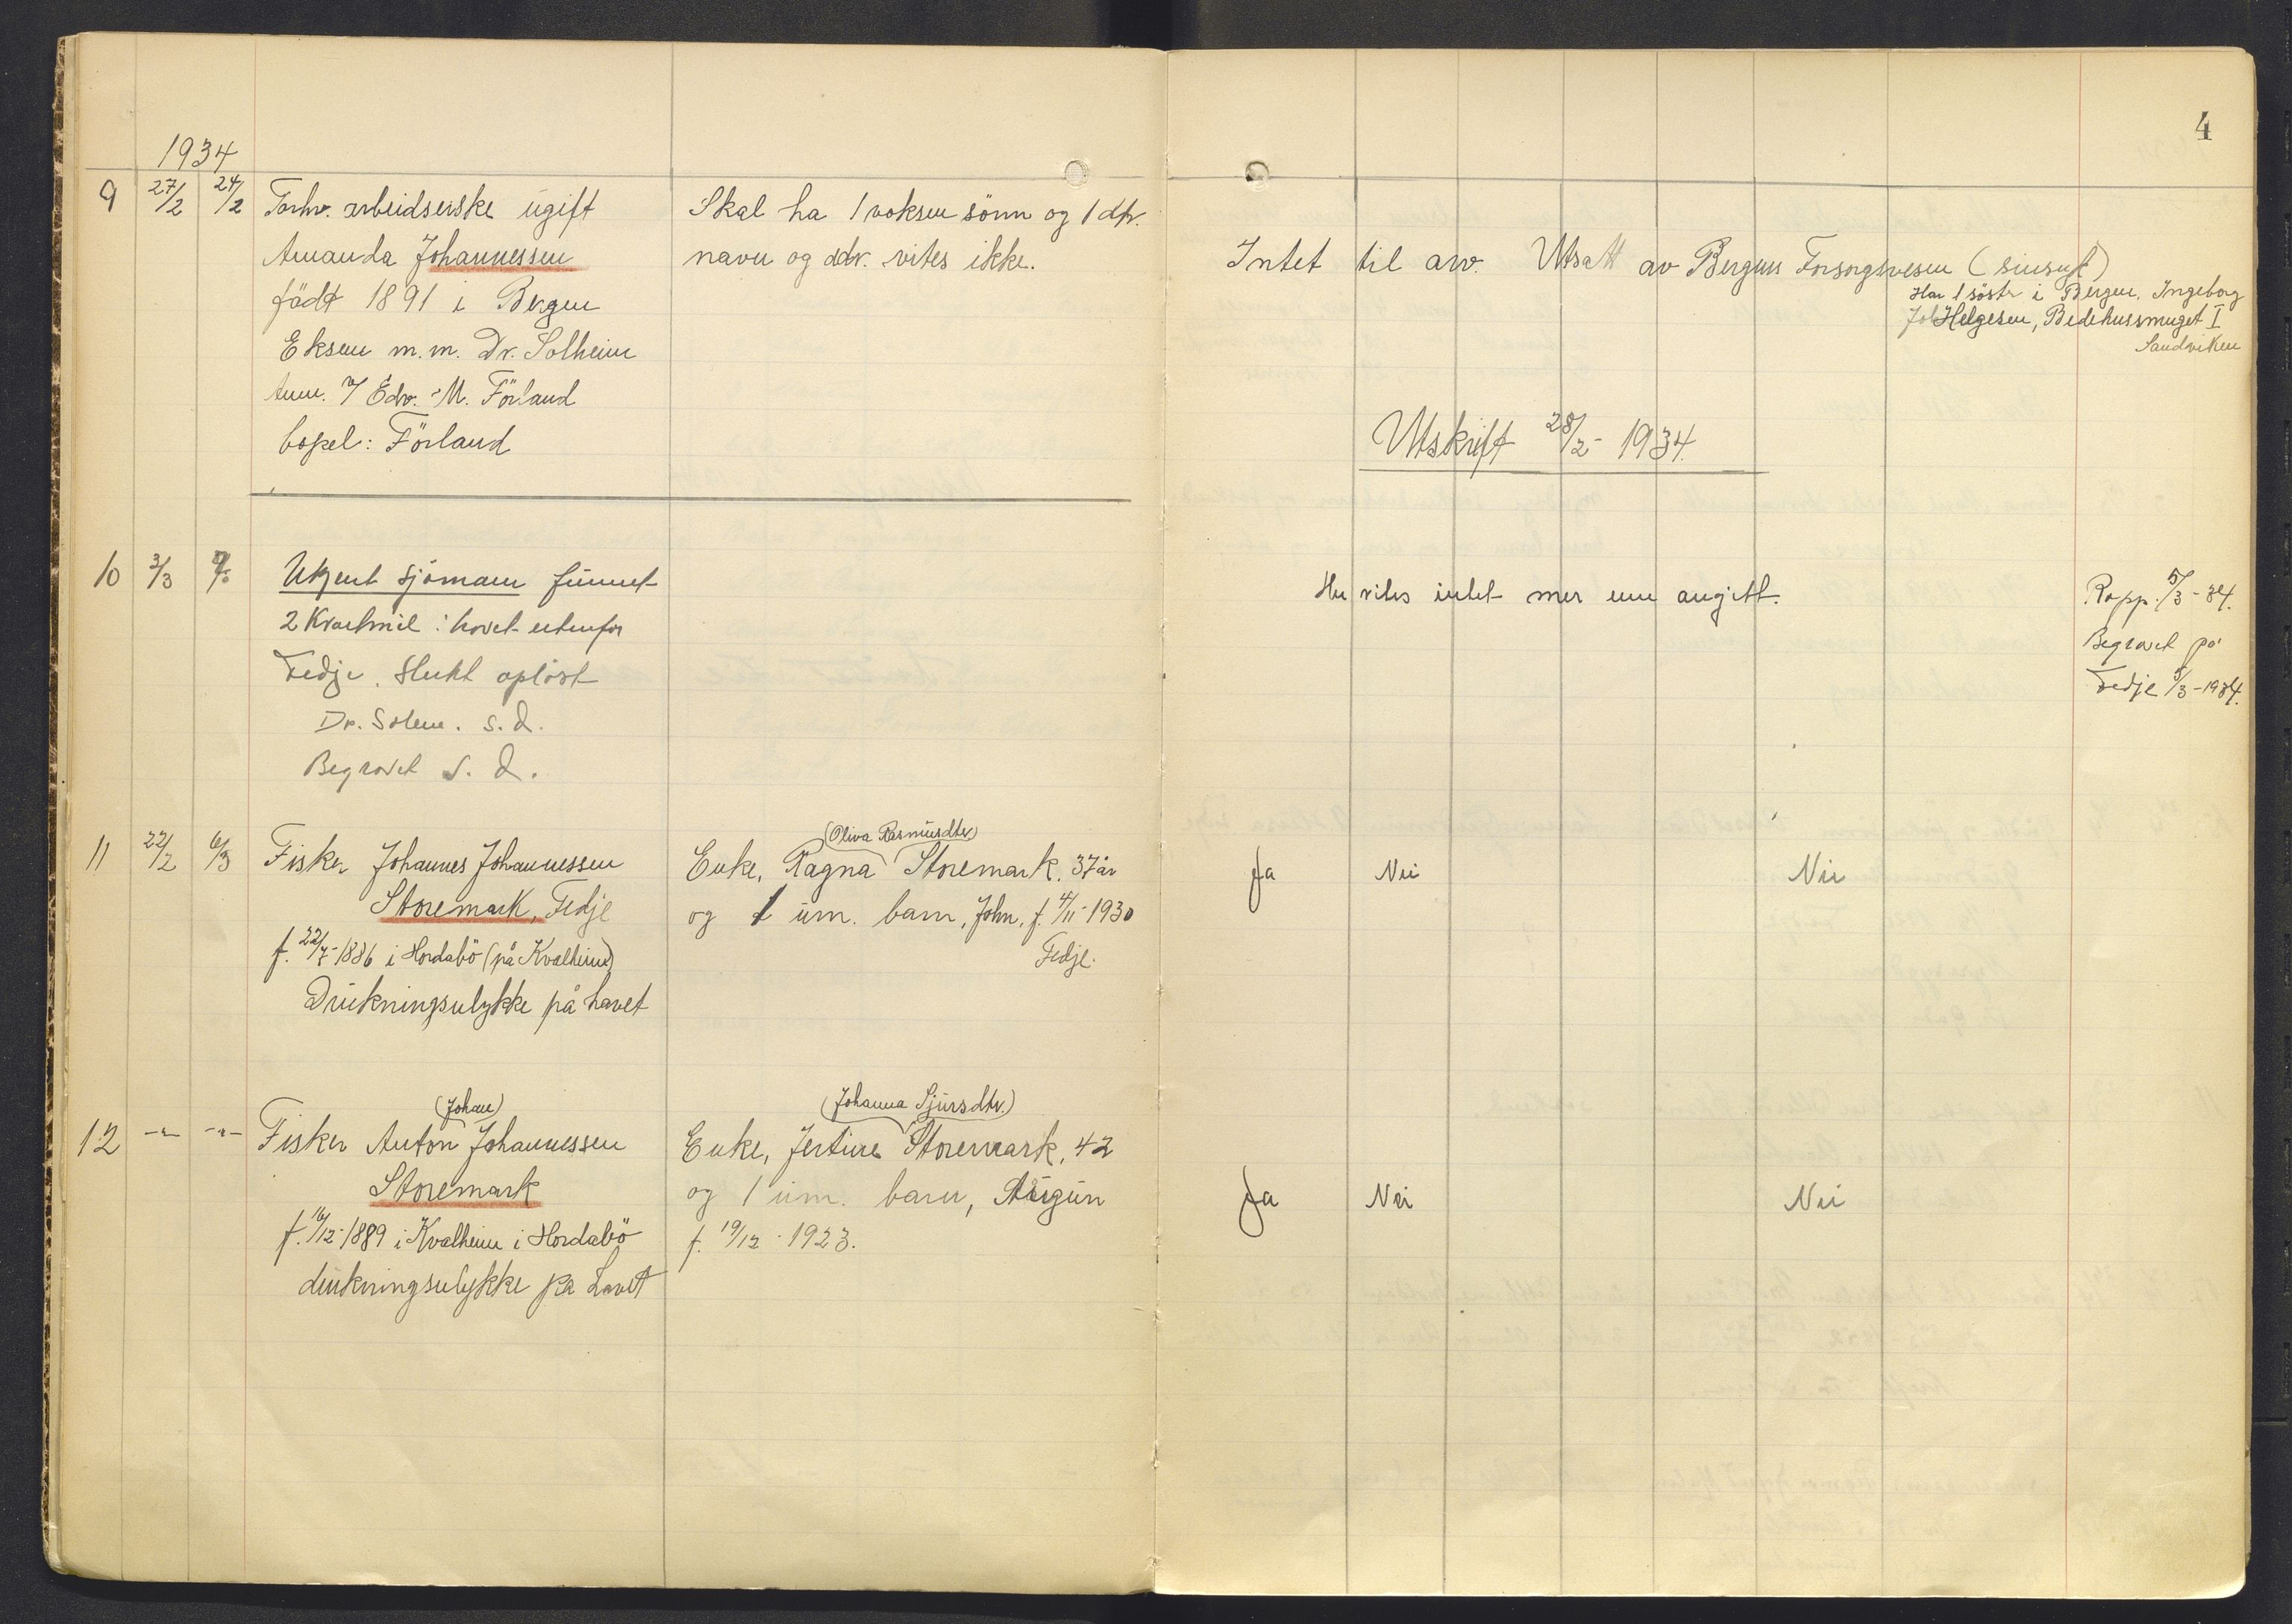 4
1934
9 27/2 24/2 Forhv. arbeidserske ugift
Amanda Johannessen
född 1891 i Bergen
Eksem m.m. Dr. Solheim
Anm. v/ Edv. M. Förland
bopel: Förland
Skal ha 1 voksen sönn og 1 dtr.
navn og adr. vites ikke.
Intet til arv. Utsatt av Bergens Forsorgsvesen (sinsyk)
Har 1 söster i Bergen, Ingeborg
Helgesen, Bedehussmuget I
Sandviken
Utskrift 28/2 - 1934.
10 3/3 Ukjent sjömann funnet
2 Kvartmil i havet utenfor
Fedje. Slukt oplöst
Dr. Solem. s.d.
Begravet s.d.
Her vites intet mer enn angitt.
Rapp. 5/3 - 34.
Begravet på
Fedje 5/3 - 1934.
11 22/2 6/3 Fisker Johannes Johannessen
Storemark, Fedje
f. 22/7 - 1886 i Hordabö (på Kvalheim)
Drukningsulykke på havet
(Oliva Rasmusdtr)
Enke, Ragna Storemark. 37 år
og 1 um. barn, John, f. 4/11 - 1930
Fedje.
Ja Nei Nei
12 -"- -"- Fisker Anton (Johan) Johannessen
Storemark
f. 16/12 - 1889 i Kvalheim i Hordabö
drukningsulykke på havet
(Johanna Sjursdtr.)
Enke, Jertine Storemark, 42
og 1 um. barn,
f. 19/12 - 1923.
Ja Nei Nei